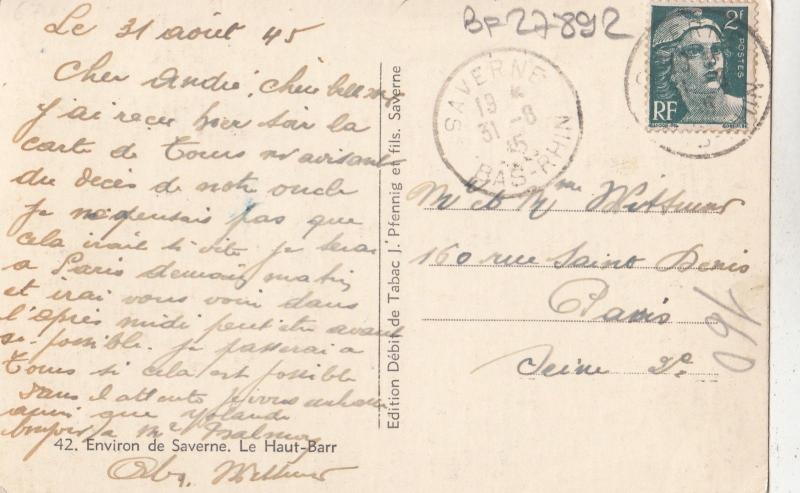 Le 31 août 45
Cher André, Chère
J'ai reçu hier soir la
carte de Tours m'avisant
du décès de notre oncle
Je ne pensais pas que
cela irait si vite je serai
a Paris demain matin
et irai vous voir dans
l'après midi peut être avant
si possible. je passerai a
Tours si cela est possible
Dans l'attente je vous
ainsi que Yolande
bonjour a
42. Environ de Saverne. Le Haut-Barr
Wittmer
Edition Débit de Tabac J. Pfennig et fils. Saverne
BF27892
SAVERNE
19 *
31 -8
45
BAS-RHIN
2F
POSTES
RF
M et Mme Wittmer
160 rue Saint Denis
Paris
Seine
160